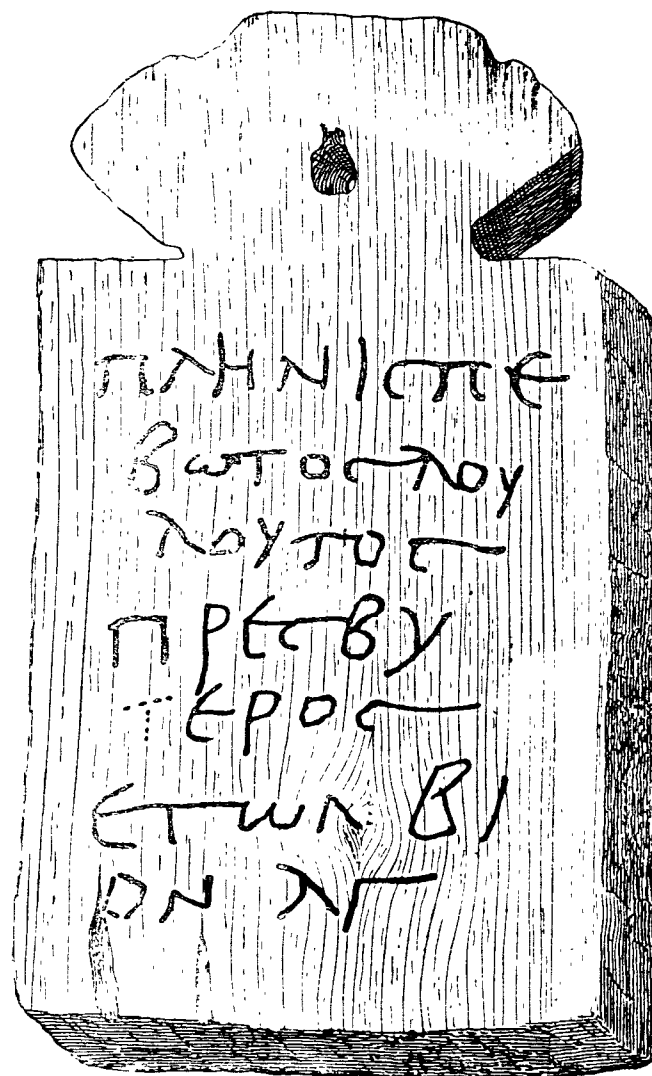 ΠΛΗΝΙϹΠΕ
ΒωΤΟϹΛΟΥ
ΛΟΥΠΟϹ
ΠΡΕϹΒΥ
ΤΕΡΟϹ
ΕΤωΝ ΒΙ
ΟΝ ΛΓ